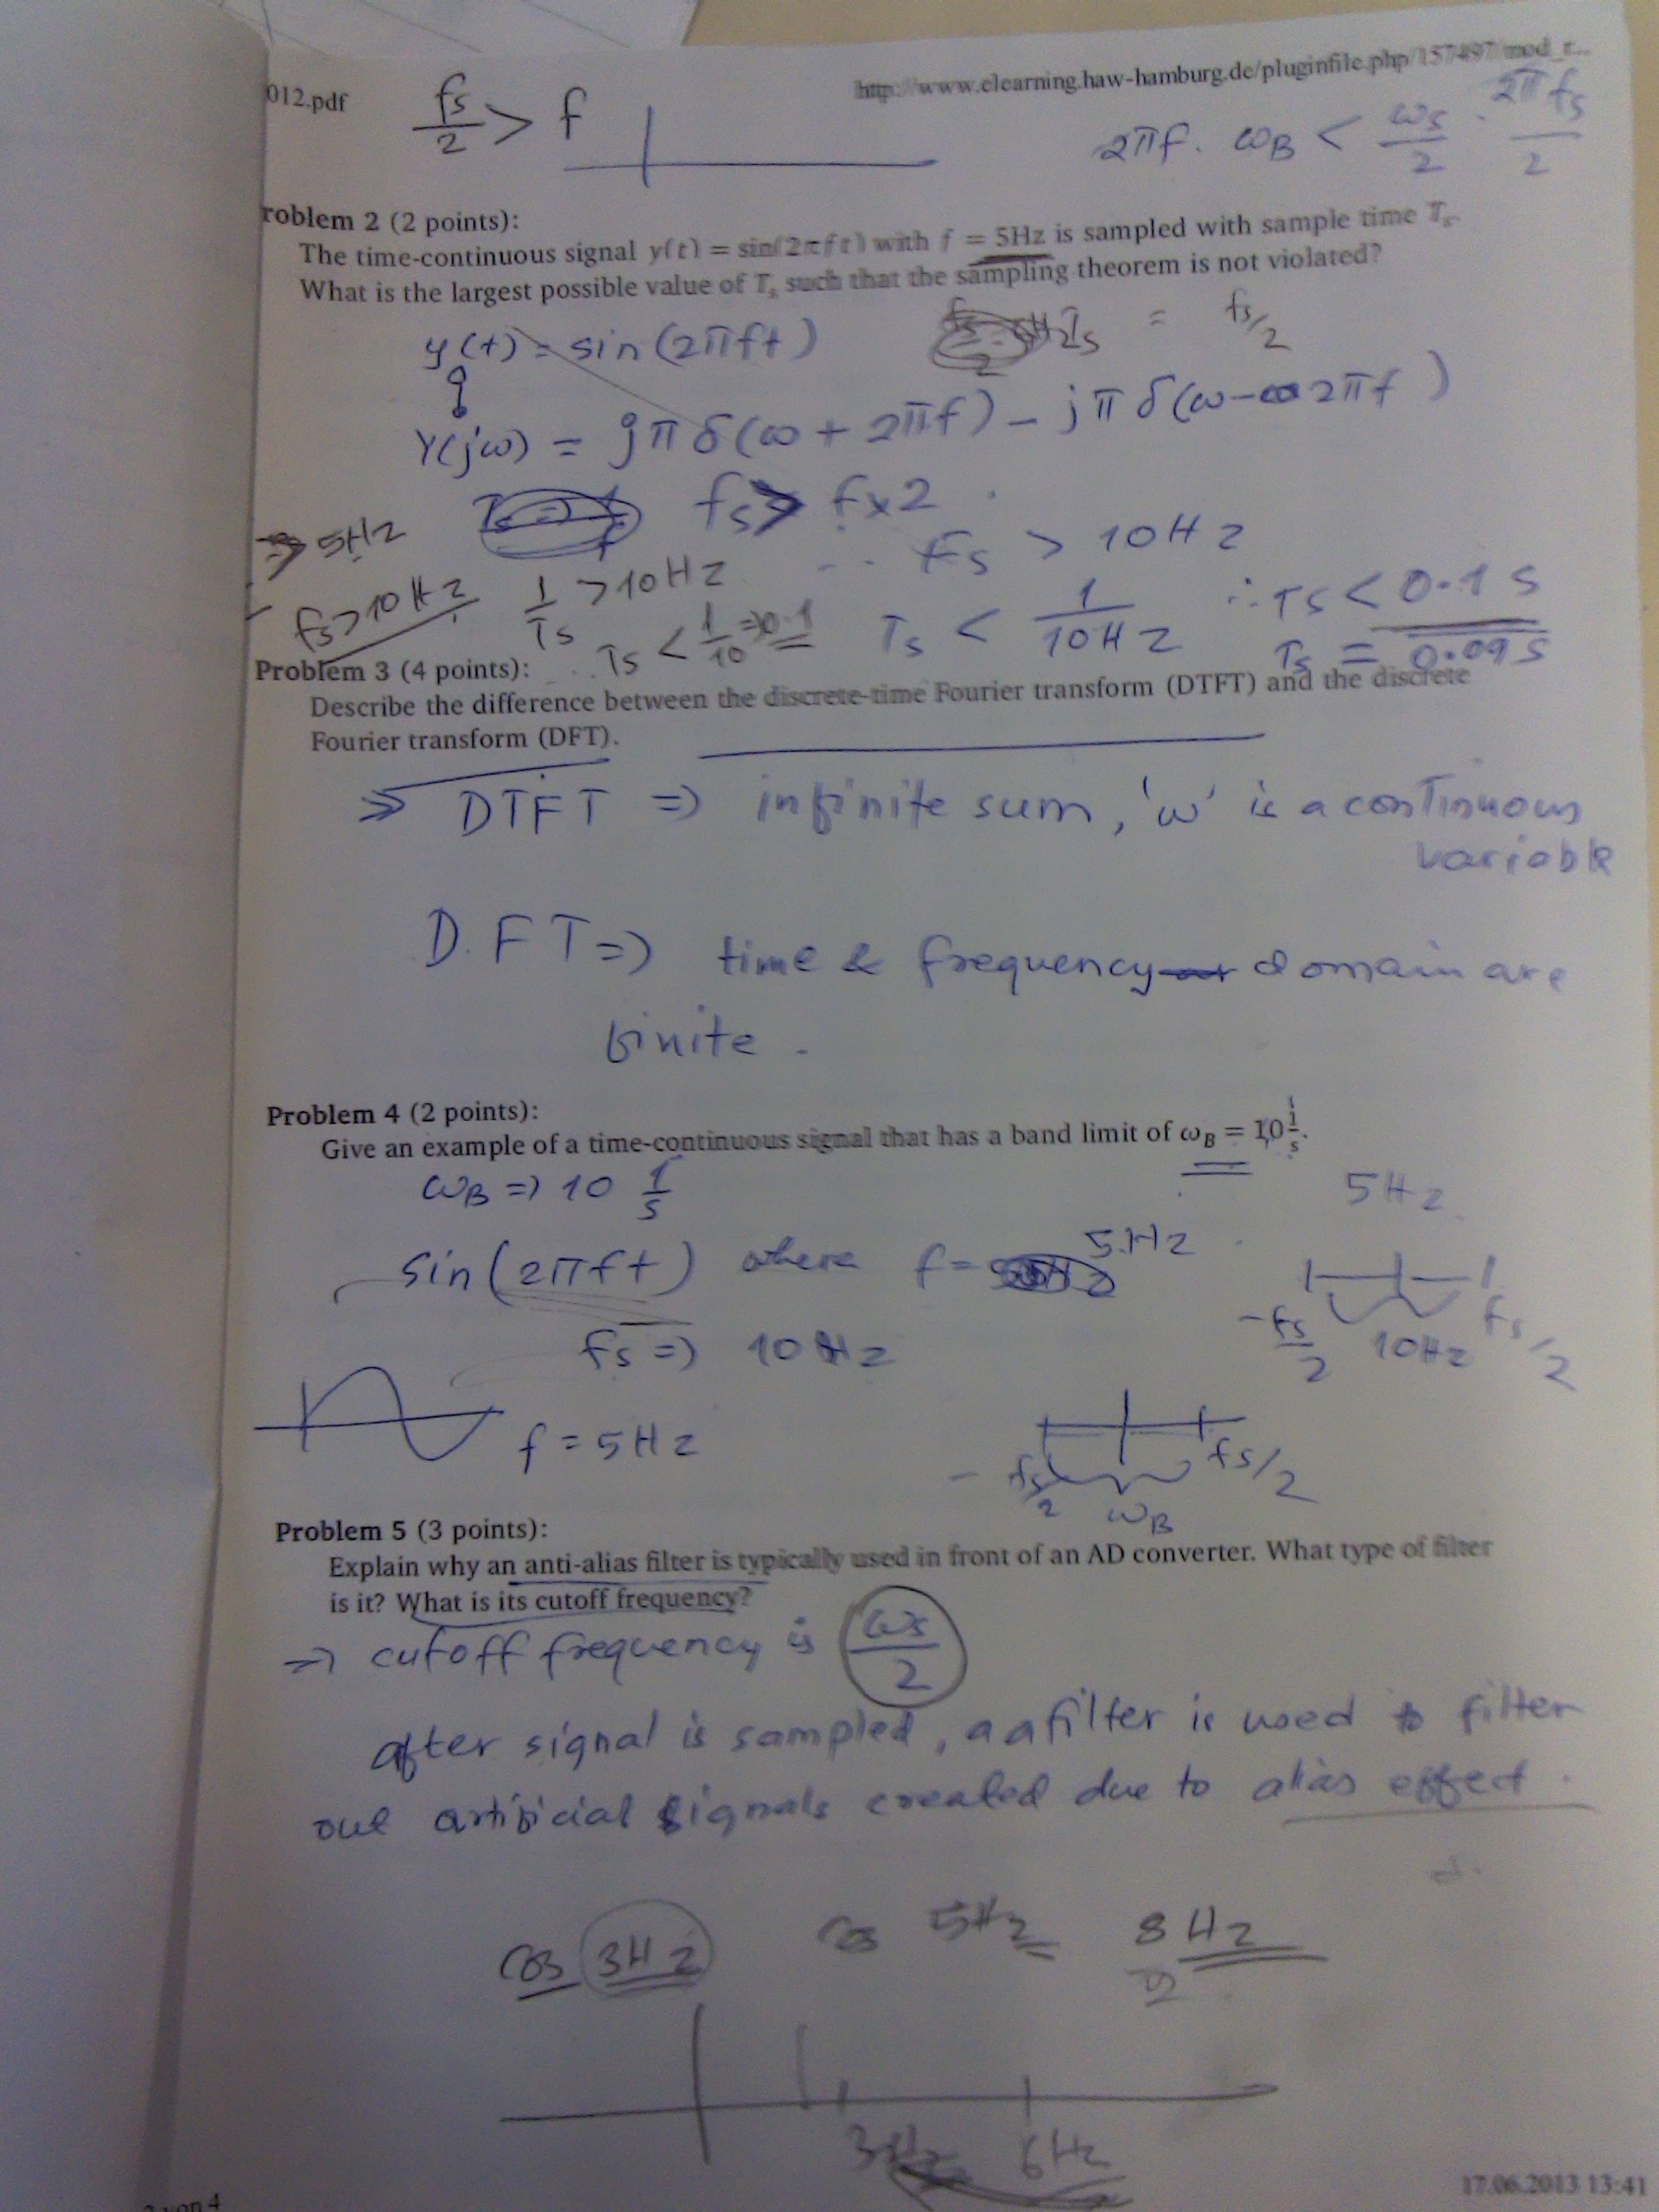 012.pdf
http://www.elearning.haw-hamburg.de/pluginfile.php/157497/mod_r...
fs/2 > f
2πf. ωB < ωs/2 . 2πfs/2
roblem 2 (2 points):
The time-continuous signal y(t) = sin(2πft) with f = 5Hz is sampled with sample time Ts.
What is the largest possible value of Ts such that the sampling theorem is not violated?
y(t) = sin(2πft)
= fs/2
Y(jω) = jπδ(ω + 2πf) - jπδ(ω - 2πf)
fs > f x 2
5Hz
∴ fs > 10Hz
fs > 10Hz
1/Ts > 10Hz
Ts < 1/10 => 0.1
Ts < 1/10Hz
∴ Ts < 0.1 s
Ts = 0.09 s
Problem 3 (4 points):
Describe the difference between the discrete-time Fourier transform (DTFT) and the discrete
Fourier transform (DFT).
DTFT => infinite sum, 'ω' is a continuous
variable
D.FT => time & frequency domain are
finite.
Problem 4 (2 points):
Give an example of a time-continuous signal that has a band limit of ωB = 10 1/s.
ωB => 10 1/s
5Hz
sin(2πft) where f = 5Hz
fs => 10Hz
-fs/2 10Hz fs/2
f = 5Hz
-fs/2 ωB fs/2
Problem 5 (3 points):
Explain why an anti-alias filter is typically used in front of an AD converter. What type of filter
is it? What is its cutoff frequency?
=> cutoff frequency is ωs/2
after signal is sampled, a afilter is used to filter
out artificial signals created due to alias effect.
cos 3Hz cos 5Hz 8Hz
2
3Hz 6Hz
17.06.2013 13:41
von 4